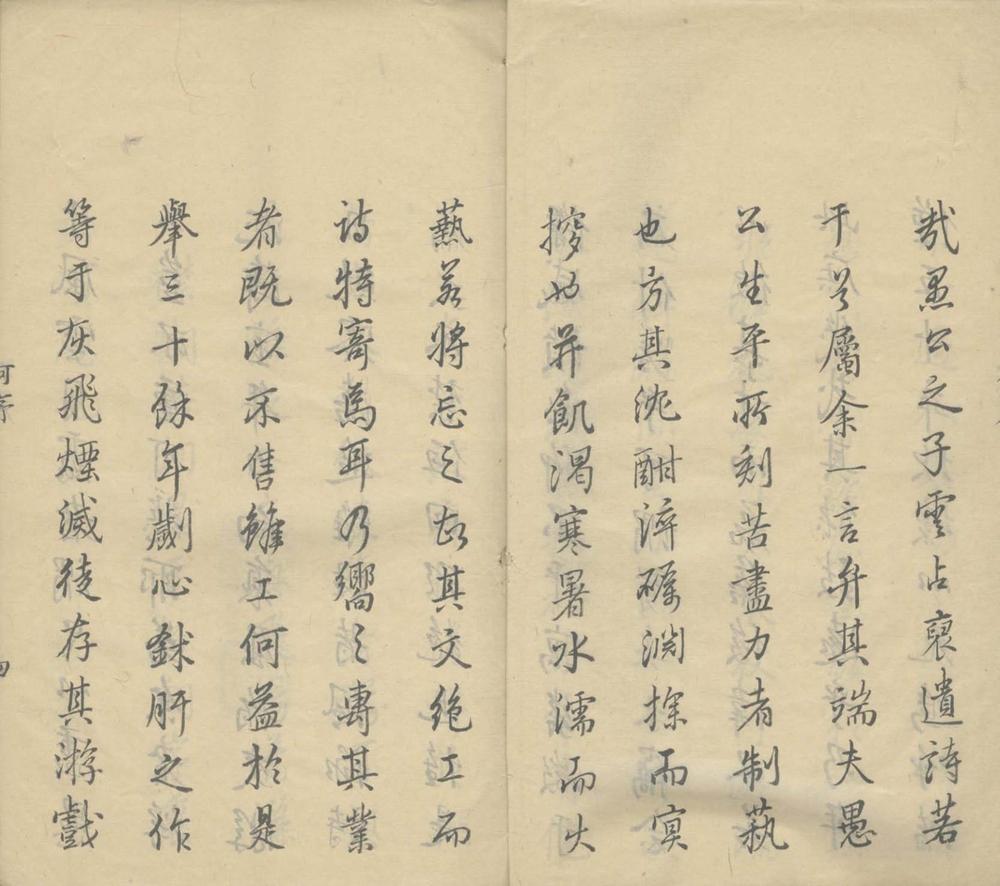 哉愚公之子雲占裒遺詩若
干首屬余一言弁其端夫愚
公生平所刻苦盡力者制蓺
也方其沈酣淬礪淵探而冥
搜也并飢渴寒暑水濡而火
爇若將忘之故其文絕工而
詩特寄焉耳乃嚮之專其業
者既以不售雖工何益於是
舉三十餘年劌心鉥肝之作
等于灰飛煙滅徒存其游戲